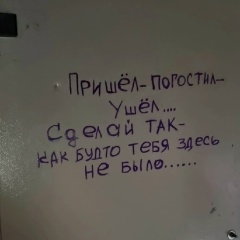 Пришёл-погостил-
Ушёл....
Сделай так-
как будто тебя здесь
не было......